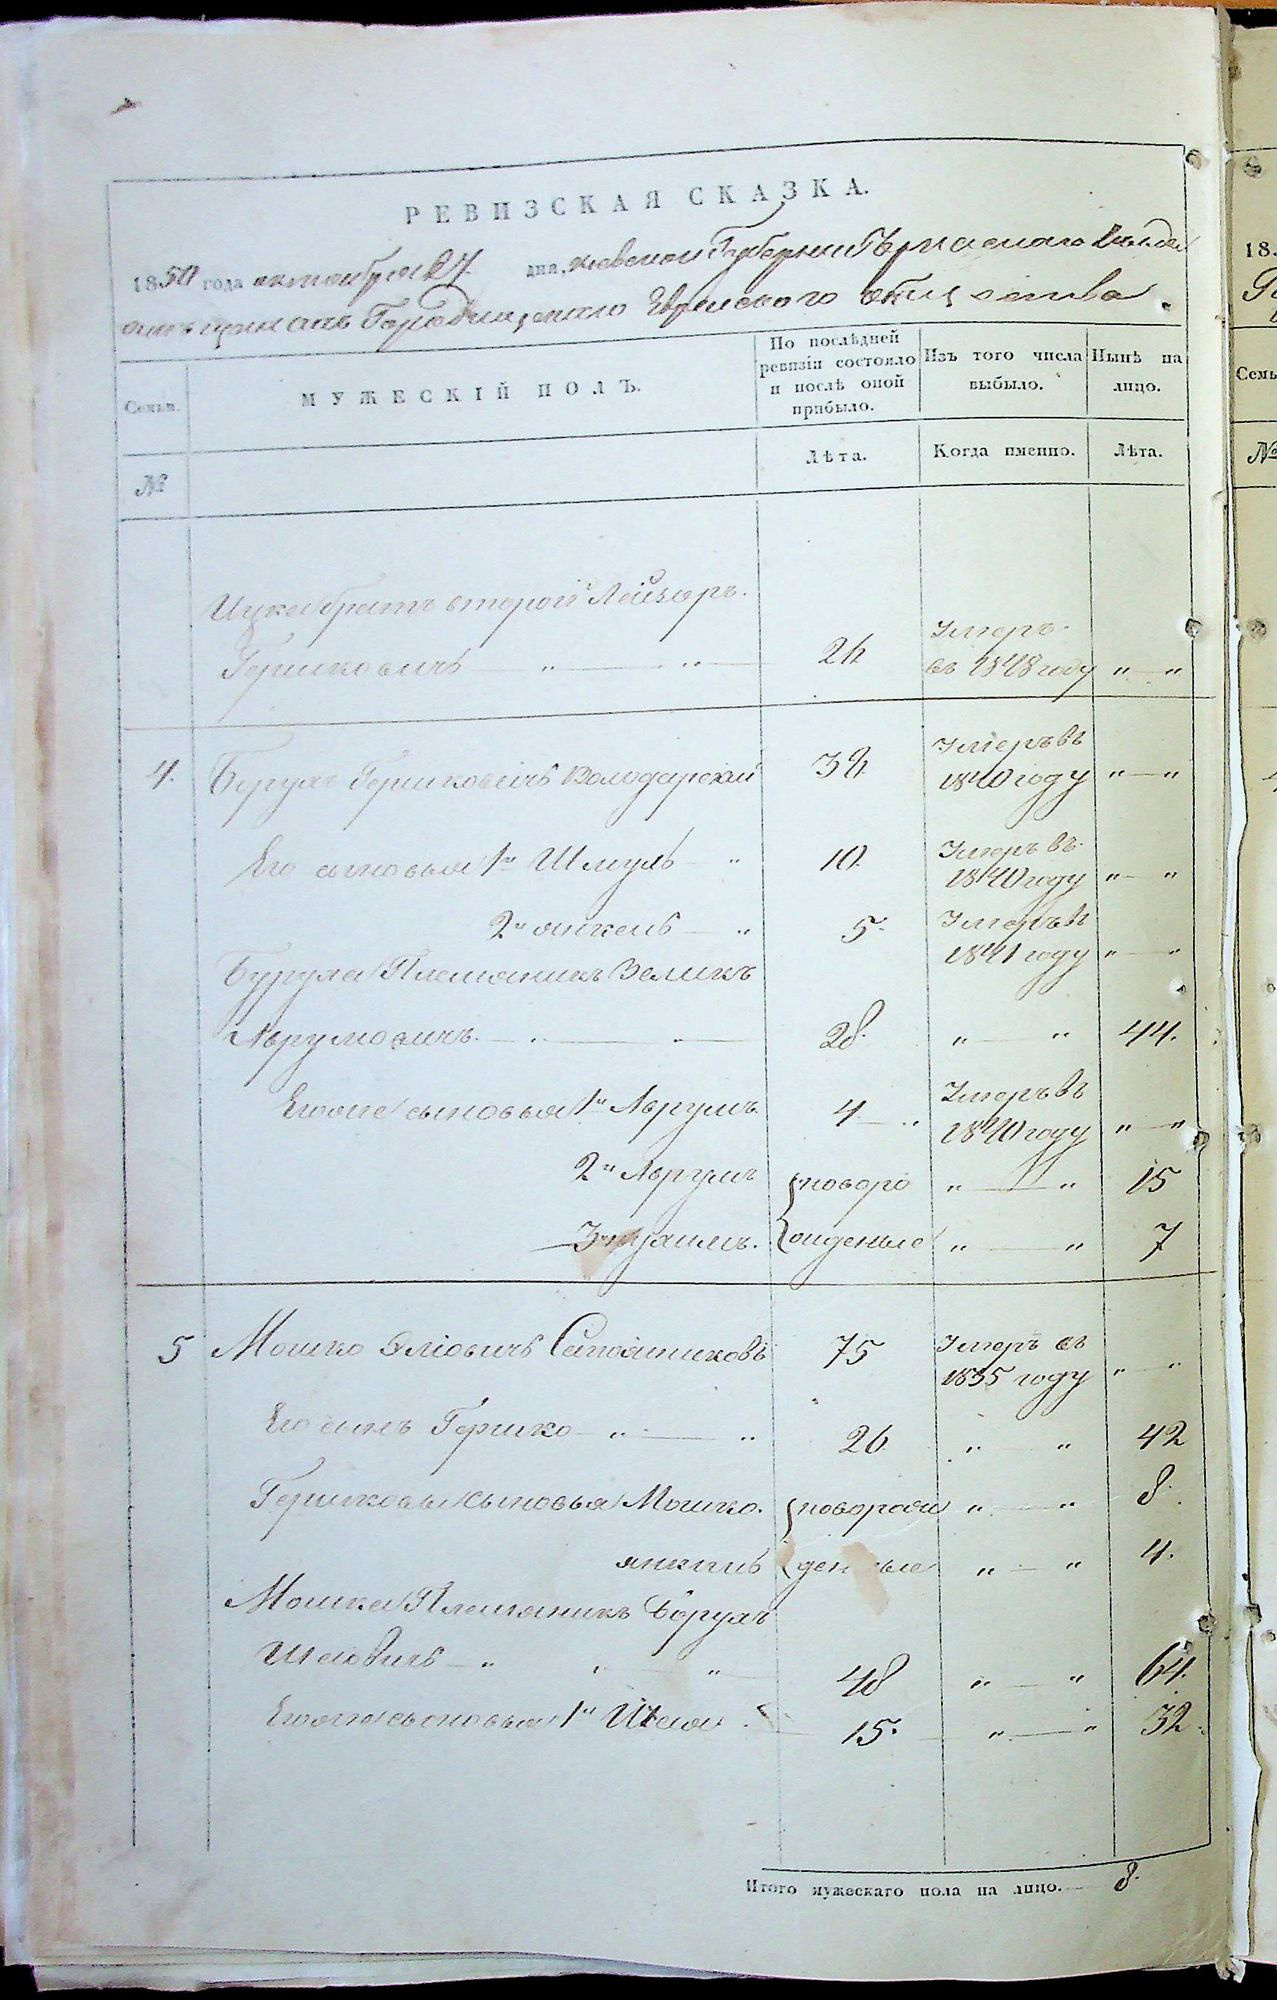 РЕВИЗСКАЯ СКАЗКА.
1850 года октября 27 дня, Киевской Губерніи
Городищенского Еврейского общества.
Семьи.
МУЖЕСКІЙ ПОЛЪ.
По послѣдней
ревизіи состояло
и послѣ оной
прибыло.
Изъ того числа
выбыло.
Нынѣ на
лицо.
№
Лѣта.
Когда именно.
Лѣта.
Ицка братъ второй Лейзоръ
Гершковичъ 26 Умеръ
въ 1848 году
4. Берулъ Гершковичъ Володарскій Умеръ въ
1840 году
Его сыновья 1й Шмуль 10 Умеръ въ
1840 году
2й Янкель 5. Умеръ въ
1841 году
Племянникъ Зеликъ
Аврумовичъ. 28. 44.
Егоже сыновья 1й Аврумъ 4 Умеръ въ
1840 году
2й Аврумъ новоро 15
3й Хаимъ. жденные 7
5 Мошко Эліовичъ Сапожниковъ 75 Умеръ въ
1835 году
Его сынъ Гершко 26 42
Гершковы сыновья Мошко. новорож 8.
Янкель денные 4.
Мошка Племянникъ Борухъ
48 64.
Егоже сыновья 1й 15. 32.
Итого мужескаго пола на лицо. 8.
18
Семь
№